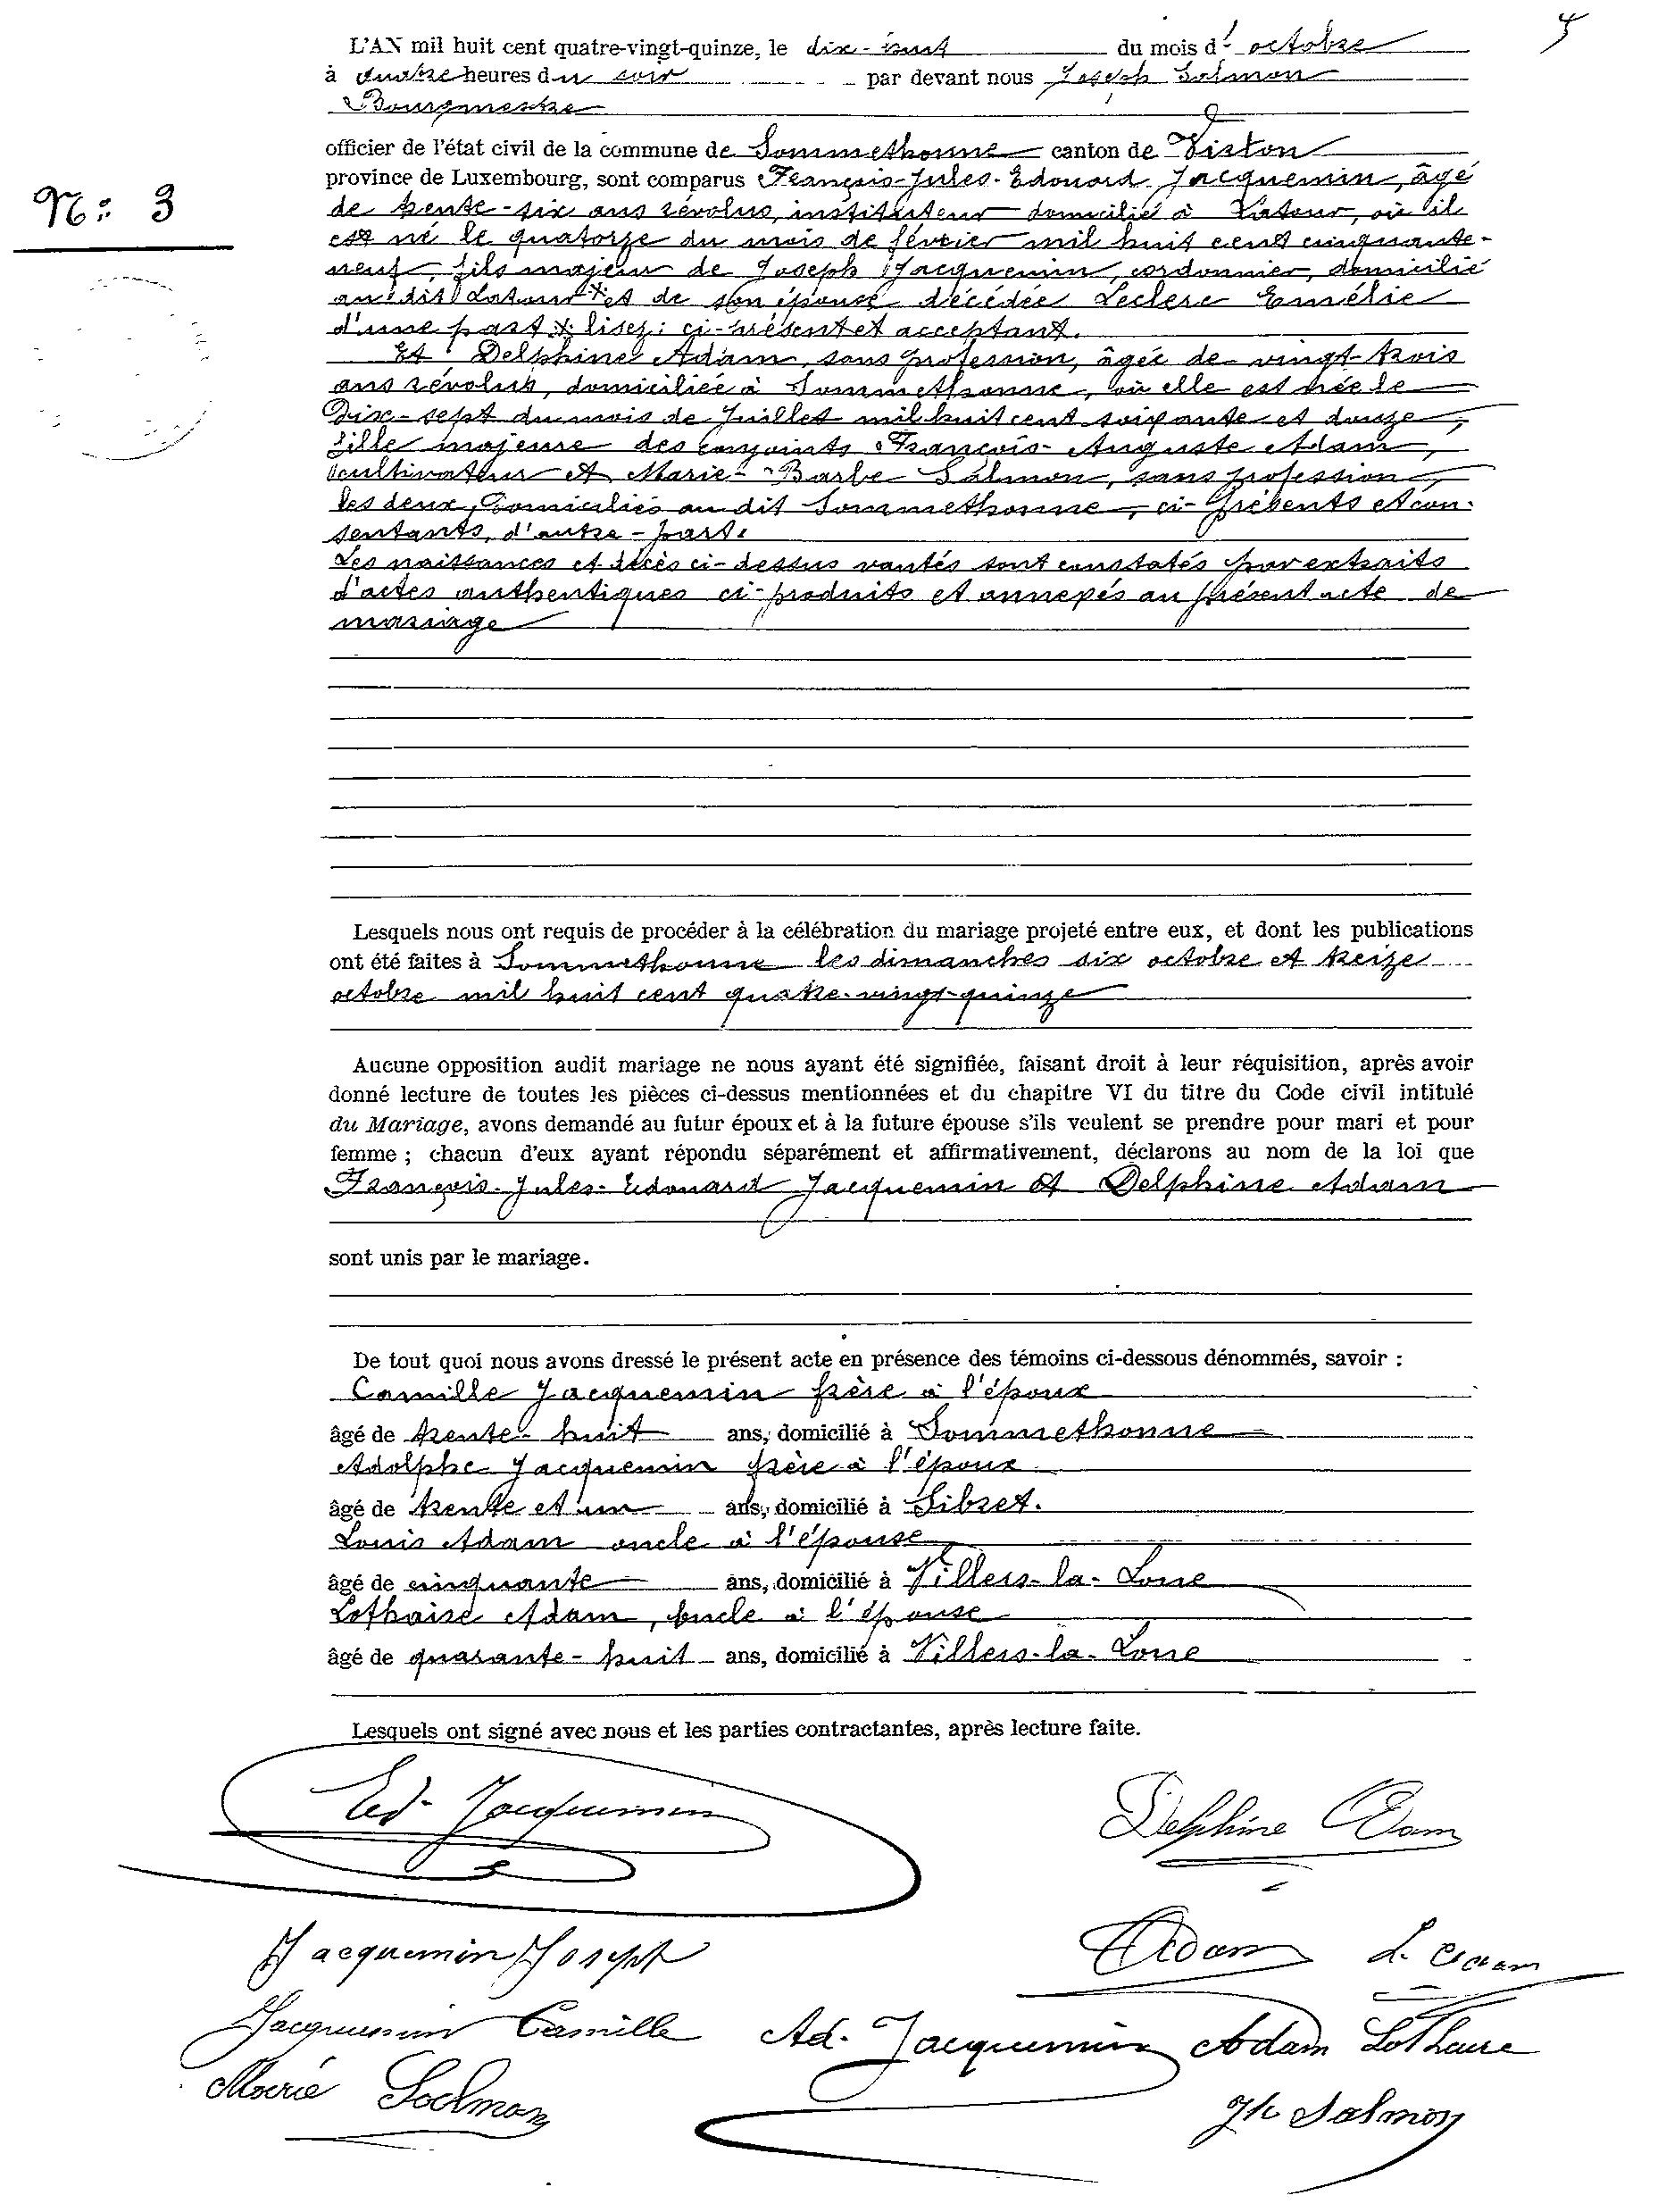 5
L'AN mil huit cent quatre-vingt-quinze, le dix-huit du mois d' octobre
à quatre heures du soir par devant nous Joseph Salmon
Bourgmestre
officier de l'état civil de la commune de Sommethonne canton de Virton
province de Luxembourg, sont comparus François-Jules-Edouard Jacquemin, âgé
N°: 3
de trente-six ans révolus, instituteur domicilié à Latour, où il
est né le quatorze du mois de février mil huit cent cinquante-
neuf, fils majeur de Joseph Jacquemin, cordonnier, domicilié
au dit Latour * et de son épouse décédée Leclerc Emélie
d'une part * lisez: ci-présent et acceptant.
Et Delphine Adam, sans profession, âgée de vingt-trois
ans révolus, domiciliée à Sommethonne, où elle est née le
Dix-sept du mois de Juillet mil huit cent soixante et douze,
fille majeure des conjoints François-Auguste Adam,
cultivateur et Marie-Barbe Salmon, sans profession,
les deux domiciliés au dit Sommethonne, ci-présents et con-
sentants, d'autre-part.
Les naissances et décès ci-dessus vantés sont constatés par extraits
d'actes authentiques ci-produits et annexés au présent acte de
mariage
Lesquels nous ont requis de procéder à la célébration du mariage projeté entre eux, et dont les publications
ont été faites à Sommethonne les dimanches six octobre et treize
octobre mil huit cent quatre-vingt-quinze
Aucune opposition audit mariage ne nous ayant été signifiée, faisant droit à leur réquisition, après avoir
donné lecture de toutes les pièces ci-dessus mentionnées et du chapitre VI du titre du Code civil intitulé
du Mariage, avons demandé au futur époux et à la future épouse s'ils veulent se prendre pour mari et pour
femme ; chacun d'eux ayant répondu séparément et affirmativement, déclarons au nom de la loi que
François-Jules-Edouard Jacquemin et Delphine Adam
sont unis par le mariage.
De tout quoi nous avons dressé le présent acte en présence des témoins ci-dessous dénommés, savoir :
Camille Jacquemin frère à l'époux
âgé de trente-huit ans, domicilié à Sommethonne
Adolphe Jacquemin frère à l'époux
âgé de trente et un ans, domicilié à Sibret.
Louis Adam oncle à l'épouse
âgé de cinquante ans, domicilié à Villers-la-Loue
Lothaire Adam, oncle à l'épouse
âgé de quarante-huit ans, domicilié à Villers-la-Loue
Lesquels ont signé avec nous et les parties contractantes, après lecture faite.
Ed. Jacquemin Delphine Adam
Jacquemin Joseph Adam L. Adam
Jacquemin Camille Ad. Jacquemin Adam Lothaire
Marie Salmon Jh Salmon